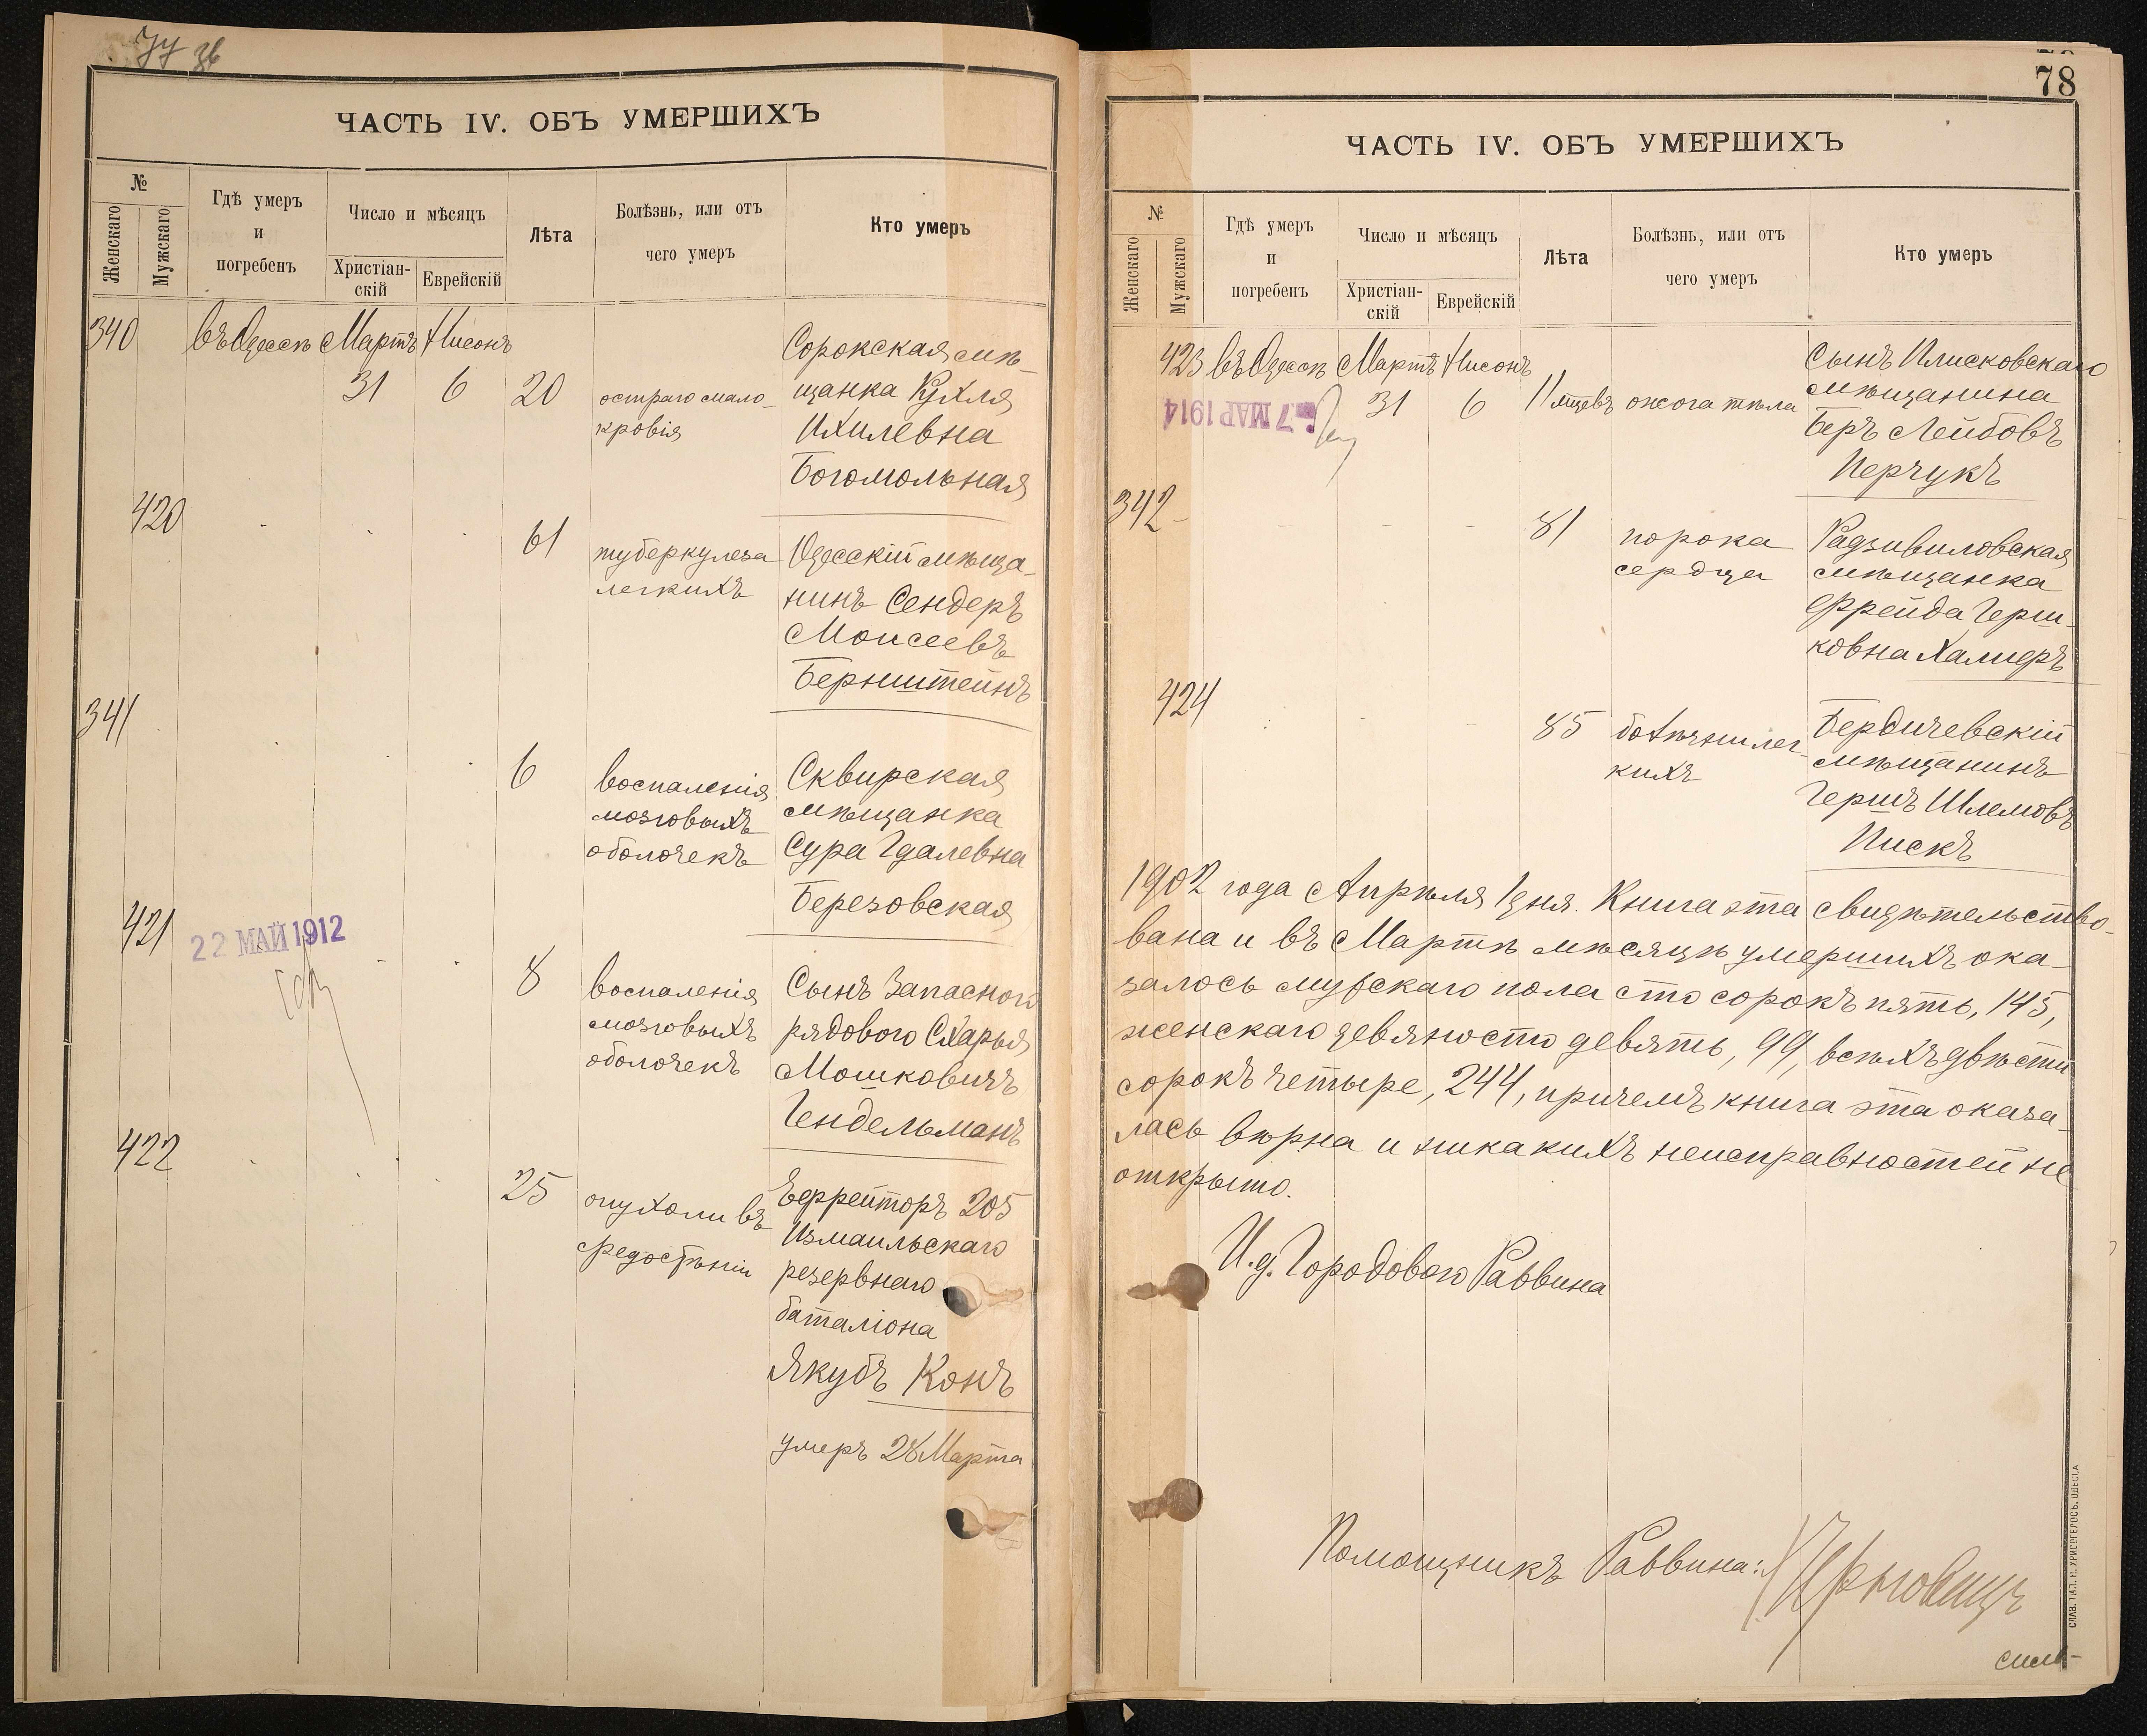 ЧАСТЬ IV. ОБЪ УМЕРШИХЪ
№
Женскаго
Мужскаго
Гдѣ умеръ
и
погребенъ
Число и мѣсяцъ
Христіан-
скій
Еврейскій
Лѣта
Болѣзнь, или отъ
чего умеръ
Кто умеръ
340
въ Одессѣ Мартъ Нисонъ
31 6 20
остраго мало-
кровія
Сорокская мѣ-
щанка Рухля
Ихилевна
Богомольная
420
61
туберкулеза
легкихъ
Одесскій мѣща-
нинъ Сендеръ
Моисеевъ
Бернштейнъ
341
6
воспаленія
мозговыхъ
оболочекъ
Сквирская
мѣщанка
Сура Гдалевна
Березовская
421
22 МАЙ 1912
8
воспаленія
мозговыхъ
оболочекъ
Сынъ Запаснаго
рядового Схарья
Мошковичъ
Гендельманъ
422
25
опухоли въ
средостѣніи
Ефрейторъ 205
Измаильскаго
резервнаго
баталіона
Якубъ Конъ
умеръ 28 Марта
78
ЧАСТЬ IV. ОБЪ УМЕРШИХЪ
№
Женскаго
Мужскаго
Гдѣ умеръ
и
погребенъ
Число и мѣсяцъ
Христіан-
скій
Еврейскій
Лѣта
Болѣзнь, или отъ
чего умеръ
Кто умеръ
423 въ Одессѣ Мартъ Нисонъ
7 МАР 1914
31 6 11 мцевъ
ожога тѣла
Сынъ Плисковскаго
мѣщанина
Беръ Лейбовъ
Перчукъ
342
81
порока
сердца
Радзивиловская
мѣщанка
Фрейда Герш-
ковна Халмеръ
424
85
болѣзни лег-
кихъ
Бердичевскій
мѣщанинъ
Гершъ Шлемовъ
Пискъ
1902 года Апрѣля 1 дня. Книга эта свидѣтельство-
вана и въ Мартѣ мѣсяцѣ умершихъ ока-
залось мужскаго пола сто сорокъ пять, 145,
женскаго девяносто девять, 99, всѣхъ двѣсти
сорокъ четыре, 244, причемъ книга эта оказа-
лась вѣрна и никакихъ неисправностей не
открыто.
И. д. Городового Раввина
Помощникъ Раввина: